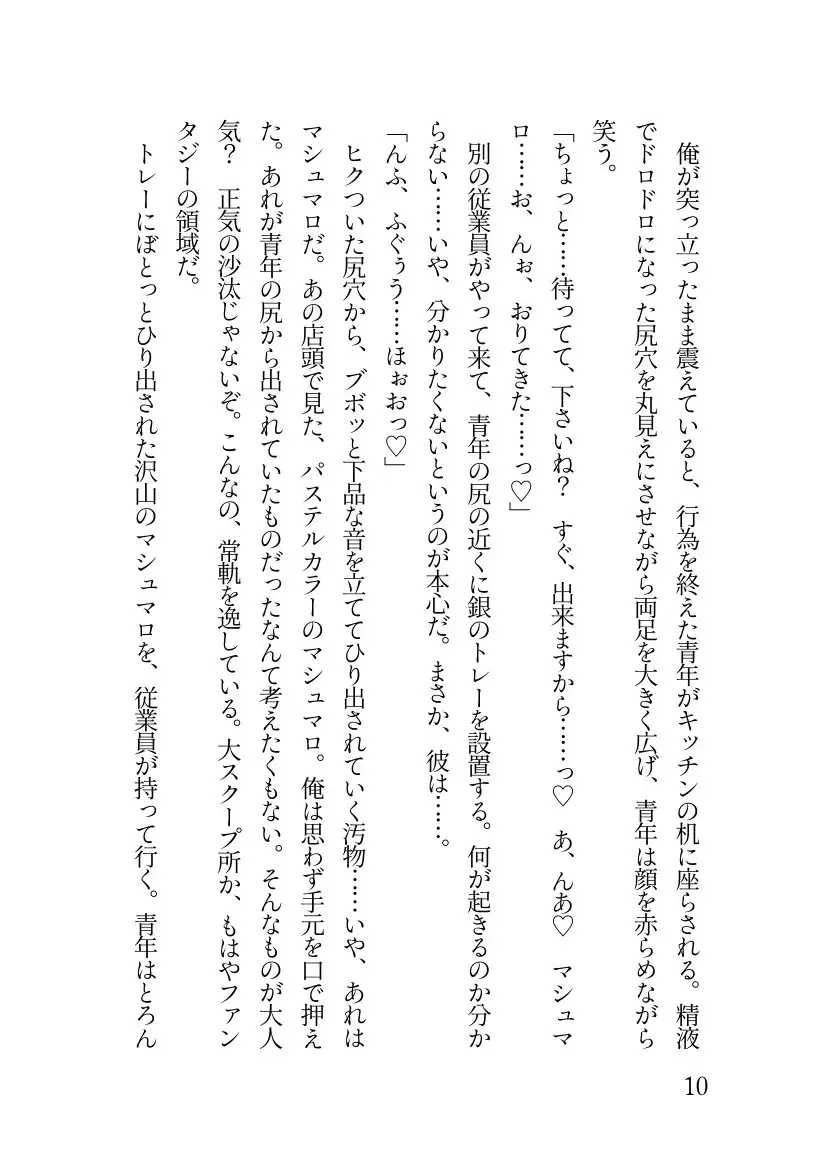 俺が突っ立ったまま震えていると、行為を終えた青年がキッチンの机に座らされる。精液
でドロドロになった尻穴を丸見えにさせながら両足を大きく広げ、青年は顔を赤らめながら
笑う。
「ちょっと……待ってて、下さいね？　すぐ、出来ますから……っ♡　あ、んあ♡　マシュマ
ロ……お、んぉ、おりてきた……っ♡」
　別の従業員がやって来て、青年の尻の近くに銀のトレーを設置する。何が起きるのか分か
らない……いや、分かりたくないというのが本心だ。まさか、彼は……。
「んふ、ふぐぅう……ほぉおっ♡」
　ヒクついた尻穴から、ブボッと下品な音を立ててひり出されていく汚物……いや、あれは
マシュマロだ。あの店頭で見た、パステルカラーのマシュマロ。俺は思わず手元を口で押え
た。あれが青年の尻から出されていたものだったなんて考えたくもない。そんなものが大人
気？　正気の沙汰じゃないぞ。こんなの、常軌を逸している。大スクープ所か、もはやファン
タジーの領域だ。
　トレーにぼとっとひり出された沢山のマシュマロを、従業員が持って行く。青年はとろん
10